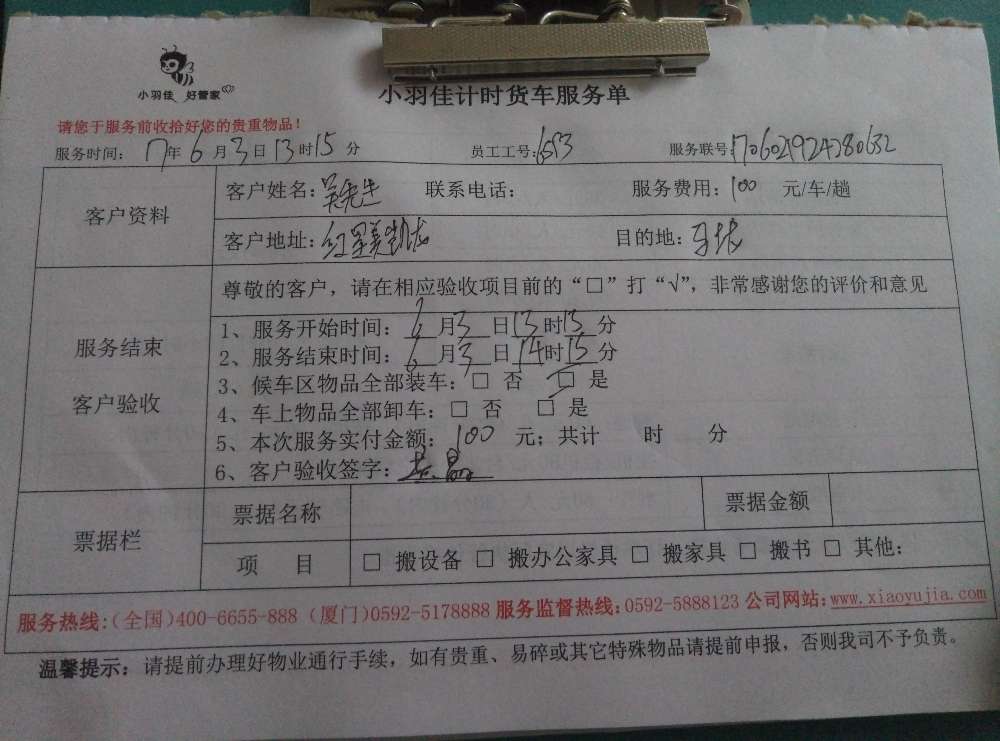 小羽佳 好管家
小羽佳计时货车服务单
请您于服务前收拾好您的贵重物品！
服务时间： 17年 6 月 3 日 13 时 15 分 员工工号： 服务联号：
客户资料
客户姓名：吴先生 联系电话： 服务费用：100 元/车/趟
客户地址：红星美凯龙 目的地：
服务结束
客户验收
尊敬的客户，请在相应验收项目前的“□”打“√”，非常感谢您的评价和意见
1、服务开始时间： 6 月 3 日 13 时 15 分
2、服务结束时间： 6 月 3 日 14 时 15 分
3、候车区物品全部装车：□ 否 □ 是
4、车上物品全部卸车：□ 否 □ 是
5、本次服务实付金额： 100 元；共计 时 分
6、客户验收签字：
票据栏
票据名称 票据金额
项 目 □ 搬设备 □ 搬办公家具 □ 搬家具 □ 搬书 □ 其他：
服务热线:(全国)400-6655-888 (厦门)0592-5178888 服务监督热线:0592-5888123 公司网站:www.xiaoyujia.com
温馨提示：请提前办理好物业通行手续，如有贵重、易碎或其它特殊物品请提前申报，否则我司不予负责。